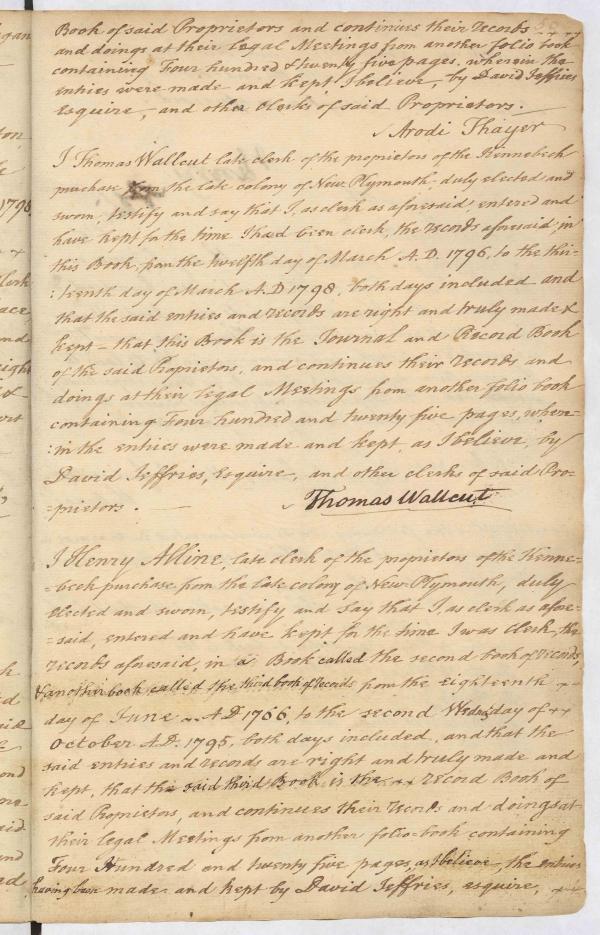 Book of said Proprietors and continues their records
and doings at their legal Meetings from another folio book
containing Four hundred & twenty five pages, wherein the
entries were made and kept, I believe, by David Jeffries
Esquire, and other Clerks of said Proprietors.
Arodi Thayer
I Thomas Wallcut late clerk of the proprietors of the Kennebeck
purchase from the late colony of New-Plymouth, duly elected and
sworn, testify and say that I, as clerk as aforesaid entered and
have kept for the time I had been clerk, the records aforesaid in
this Book, from the twelfth day of March A.D. 1796, to the thir-
:teenth day of March A.D 1798, both days included and
that the said entries and records are right and truly made &
kept – that this Book is the Journal and Record Book
of the said Proprietors, and continues their records and
doings at their legal Meetings from another folio book
containing Four hundred and twenty five pages, where-
:in the entries were made and kept, as I believe, by
David Jeffries, Esquire, and other clerks of said Pro-
-prietors.
Thomas Wallcut
I Henry Alline, late clerk of the proprietors of the Kenne=
=beck purchase from the late colony of New-Plymouth, duly
elected and sworn, testify and say that I, as clerk as afore=
=said, entered and have kept for the time I was Clerk, the
records aforesaid, in a Book called the second book of records,
& another book called the third book of records from the eighteenth
day of June A.D. 1766, to the second Wednesday of
October A.D. 1795, both days included, and that the
said entries and records are right and truly made and
kept, that the said third Book is the record Book of
said Proprietors, and continues their records and doings at
their legal Meetings from another folio-book containing
Four Hundred and twenty five pages, as I believe, the entries
having been made and kept by David Jeffries, esquire,